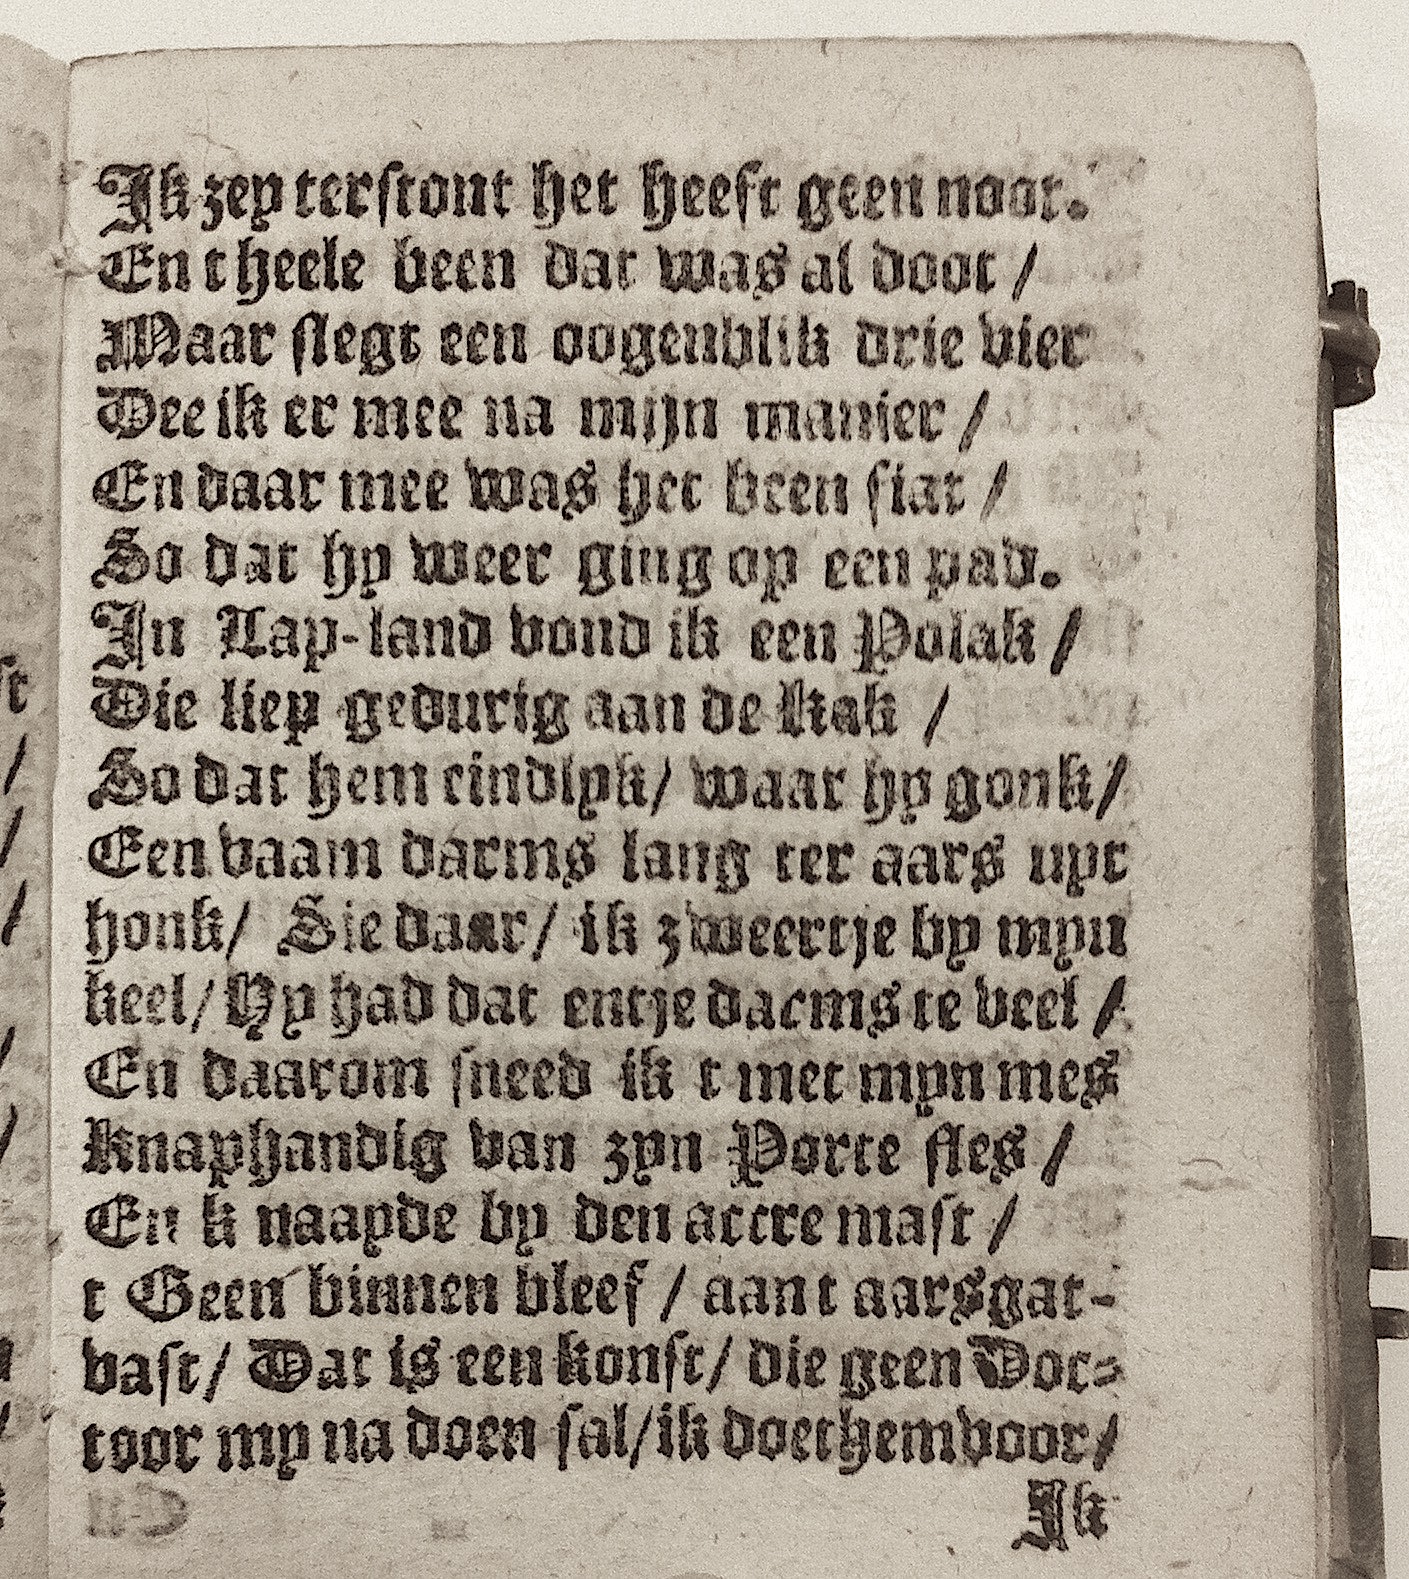 Ik zey terstont het heeft geen noot.
En t heele been dat was al doot /
Maar slegt een oogenblik drie vier
Dee ik er mee na mijn manier /
En daar mee was het been fiat /
So dat hy weer ging op een pad.
In Lap-land vond ik een Polak /
Die liep gedurig aan de kak /
So dat hem eindlyk / waar hy gonk /
Een vaam darms lang ter aars uyt
honk / Sie daar / ik zweertje by myn
keel / Hy had dat entje darms te veel /
En daarom sneed ik t met myn mes
Knaphandig van zyn Porte fles /
En k naayde by den attre mast /
t Geen binnen bleef / aan t aarsgat-
vast / Dat is een konst / die geen Doc-
toor my na doen sal / ik doet hem voor /
Ik